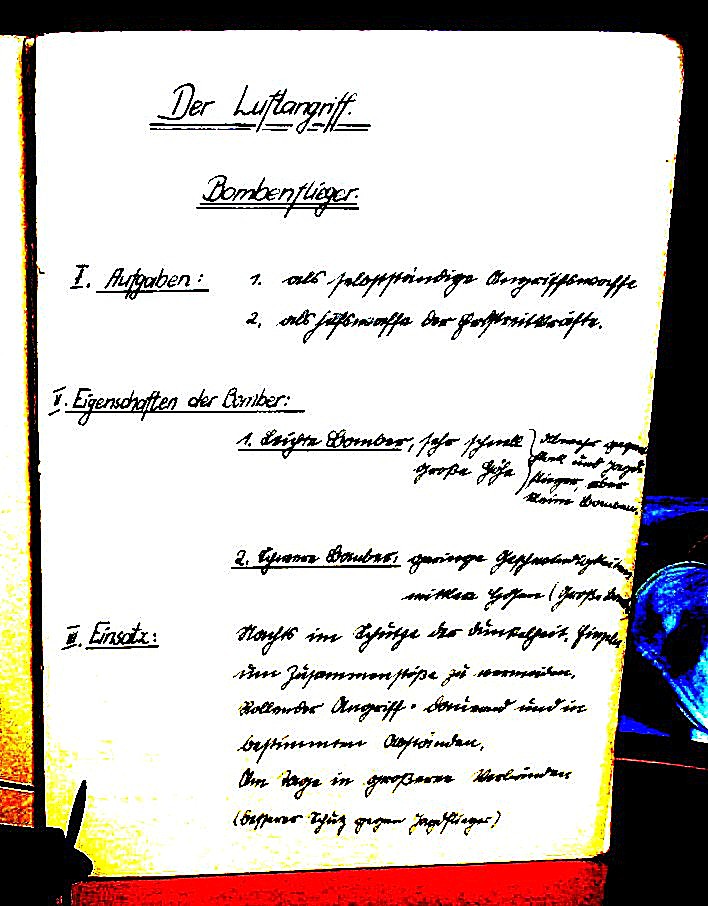 Der Luftangriff.
Bombenflieger.
I. Aufgaben: 1. als selbstständige Angriffswaffe
2. als Hilfswaffe der Erdstreitkräfte.
II. Eigenschaften der Bomber:
1. Leichte Bomber, sehr schnell
große Höhe
Abwehr gegen
Flak und Jagd
flieger, aber
kleine Bomben.
2. Schwere Bomber: geringe Geschwindigkeiten
mittlere Höhen (Große
III. Einsatz: Nachts im Schutze der Dunkelheit. Einzeln
um Zusammenstöße zu vermeiden.
Rollender Angriff. dauernd und in
bestimmten Abständen.
Am Tage in größeren Verbänden
(besserer Schutz gegen Jagdflieger)